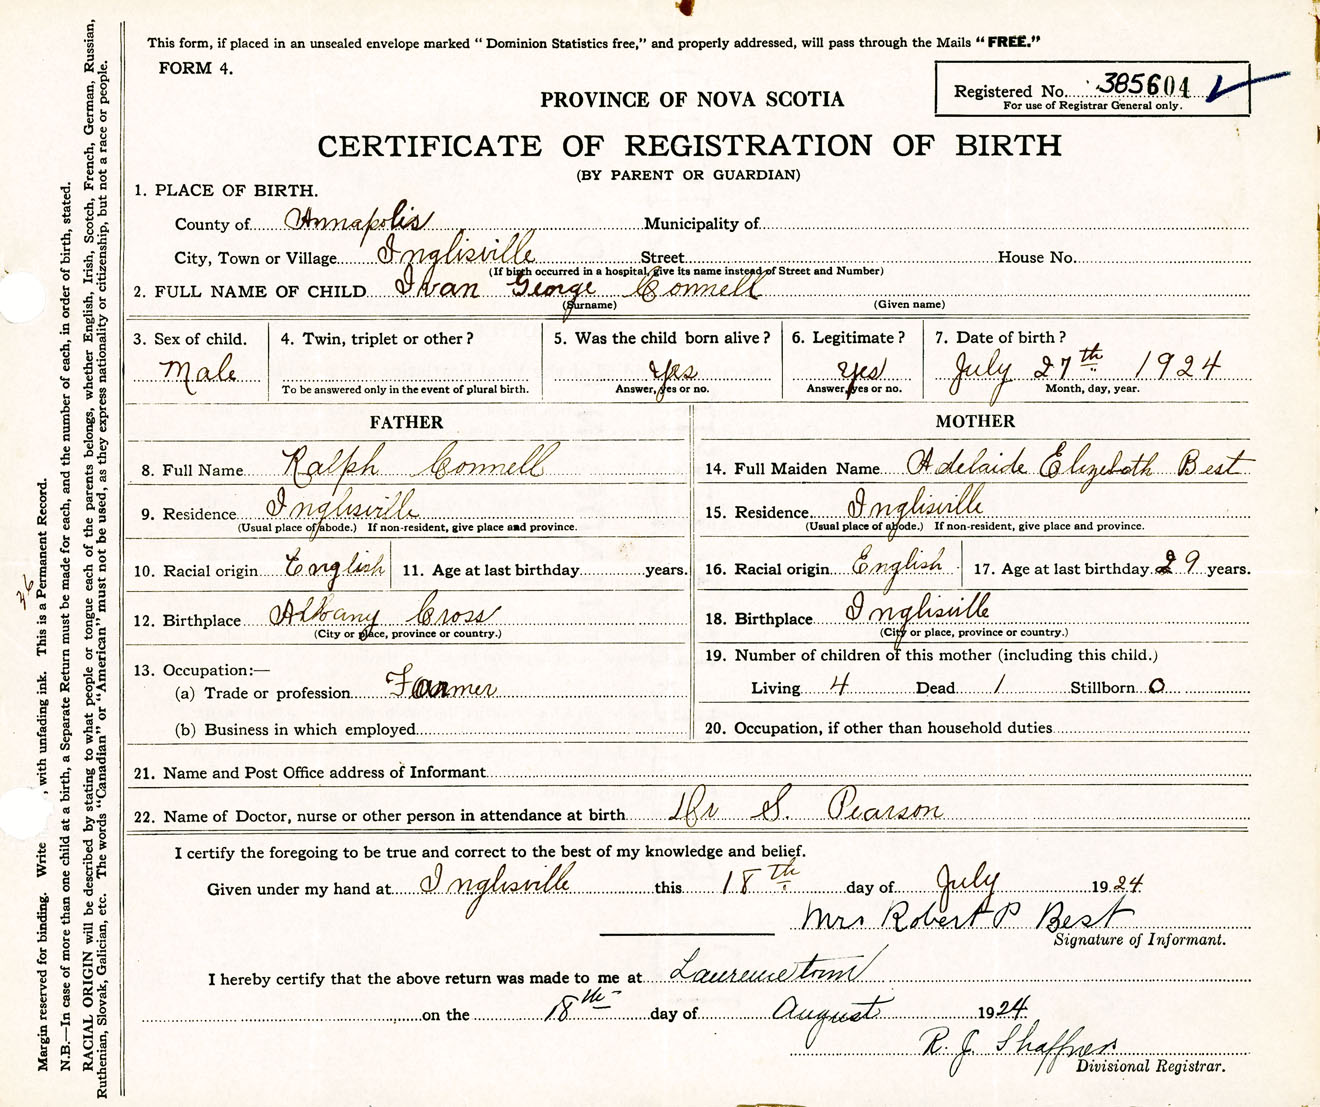 This form, if placed in an unsealed envelope marked "Dominion Statistics free," and properly addressed, will pass through the Mails "FREE."
FORM 4.
Registered No. 385604
For use of Registrar General only.
PROVINCE OF NOVA SCOTIA
CERTIFICATE OF REGISTRATION OF BIRTH
(BY PARENT OR GUARDIAN)
1. PLACE OF BIRTH.
County of Annapolis Municipality of
City, Town or Village Inglisville Street House No.
(If birth occurred in a hospital, give its name instead of Street and Number)
2. FULL NAME OF CHILD Ivan George Connell
(Surname) (Given name)
3. Sex of child. 4. Twin, triplet or other? 5. Was the child born alive? 6. Legitimate? 7. Date of birth?
Male Yes Yes July 27th 1924
To be answered only in the event of plural birth. Answer, yes or no. Answer, yes or no. Month, day, year.
FATHER MOTHER
8. Full Name Ralph Connell 14. Full Maiden Name Adelaide Elizebeth Best
9. Residence Inglisville 15. Residence Inglisville
(Usual place of abode.) If non-resident, give place and province. (Usual place of abode.) If non-resident, give place and province.
10. Racial origin English 11. Age at last birthday years. 16. Racial origin English 17. Age at last birthday 29 years.
12. Birthplace Albany Cross 18. Birthplace Inglisville
(City or place, province or country.) (City or place, province or country.)
13. Occupation:— 19. Number of children of this mother (including this child.)
(a) Trade or profession Farmer Living 4 Dead 1 Stillborn 0
(b) Business in which employed 20. Occupation, if other than household duties
21. Name and Post Office address of Informant
22. Name of Doctor, nurse or other person in attendance at birth Dr S. Pearson
I certify the foregoing to be true and correct to the best of my knowledge and belief.
Given under my hand at Inglisville this 18th day of July 1924
Mrs Robert P Best
Signature of Informant.
I hereby certify that the above return was made to me at Laurencetown
on the 18th day of August 1924
R. J. Shaffner
Divisional Registrar.
Margin reserved for binding. Write , with unfading ink. This is a Permanent Record.
36
N.B.—In case of more than one child at a birth, a Separate Return must be made for each, and the number of each, in order of birth, stated.
RACIAL ORIGIN will be described by stating to what people or tongue each of the parents belongs, whether English, Irish, Scotch, French, German, Russian,
Ruthenian, Slovak, Galician, etc. The words "Canadian" or "American" must not be used, as they express nationality or citizenship, but not a race or people.